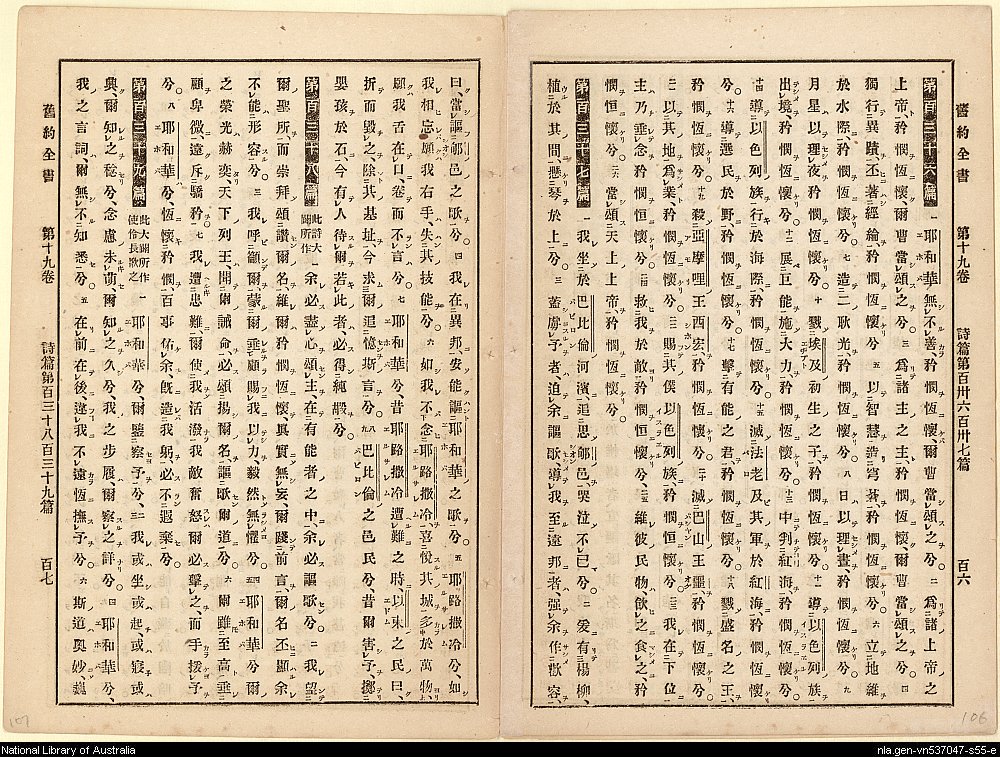 舊約全書 第十九卷 詩篇第百卅六百卅七篇 百六
第百三十六篇 一 耶和華無不善、矜憫恆懷、爾曹當頌之兮。二 爲諸上帝之
上帝、矜憫恆懷、爾曹當頌之兮。三 爲諸主之主、矜憫恆懷、爾曹當頌之兮。四
獨行異蹟、丕著經綸、矜憫恆懷兮。五 以智慧造穹蒼、矜憫恆懷兮。六 立地維
於水際、矜憫恆懷兮。七 造二耿光、矜憫恆懷兮。八 日以理晝、矜憫恆懷兮。九
月星以理夜、矜憫恆懷兮。十 戮埃及初生之子、矜憫恆懷兮。十一 導以色列族
出境、矜憫恆懷兮。十二 展巨能、施大力、矜憫恆懷兮。十三 中判紅海、矜憫恆懷兮。
十四 導以色列族、行於海際、矜憫恆懷兮。十五 滅法老及其軍於紅海、矜憫恆懷
兮。十六 導選民於野、矜憫恆懷兮。十七 擊有能之君、矜憫恆懷兮。十八 戮盛名之王、
矜憫恆懷兮。十九 殺亞摩哩王西宏、矜憫恆懷兮。二十 滅巴山王噩、矜憫恆懷兮。
二一 以其地爲業、矜憫恆懷兮。二二 賜其僕以色列族、矜憫恆懷兮。二三 我在下位、
主乃垂念、矜憫恆懷兮。二四 救我於敵、矜憫恆懷兮。二五 維彼民物、飲之食之、矜
憫恆懷兮。二六 當頌天上上帝、矜憫恆懷兮。
第百三十七篇 一 我坐於巴比倫河濱、追思郇邑、哭泣不已兮。二 爰有楊柳、
植於其間、懸琴於上兮。三 蓋虜予者、迫余謳歌、導我至遠邦者、强余作歡容、
曰、當謳郇邑之歌兮。四 我在異邦、安能謳耶和華之歌兮。五 耶路撒冷兮、如
我相忘、願我右手、失其技能兮。六 如我不念耶路撒冷、喜悅其城、多於萬物、
願我舌在口、卷而不言兮。七 耶和華兮、昔耶路撒冷遭難之時、以東之民曰、
折而毀之、除其基址、今求爾追憶斯言兮。八 巴比倫之邑民兮、昔爾害予、擲
嬰孩於石、九 今有人待爾若此者、必得純嘏兮。
第百三十八篇 此詩大闢所作 一 余必盡心頌主、在有能者之中、余必謳歌兮。二 我望
爾聖所、而崇拜頌讚爾名、維爾矜憫恆懷、眞實無妄、爾踐前言、爾名丕顯、余
不能形容兮。三 我呼籲爾、蒙爾垂顧、賜我以力、毅然無懼兮。四 耶和華兮、爾
之榮光、赫奕天下、列王聞爾誡命、必頌揚爾名、謳歌爾道兮。六 爾雖至高、垂
顧卑微、遠斥驕矜。七 我遭患難、爾使我活潑、我敵奮怒、爾必擊之、而手援予
兮。八 耶和華兮、恆懷矜憫、百事佑余、旣造我躬、必不遐棄兮。
第百三十九篇 此大闢所作使伶長歌之 一 耶和華兮、爾鑒察予兮、二 我或坐或起、或寢或
興、爾知之稔兮、念慮未萌、爾知之久兮、三 我之步履、爾察之詳兮。四 耶和華兮、
我之言詞、爾無不知悉兮。五 在前在後、邇我不遠、恆撫予兮。六 斯道奧妙、
舊約全書 第十九卷 詩篇第百三十八百三十九篇 百七
107
106
National Library of Australia
nla.gen-vn537047-s55-e